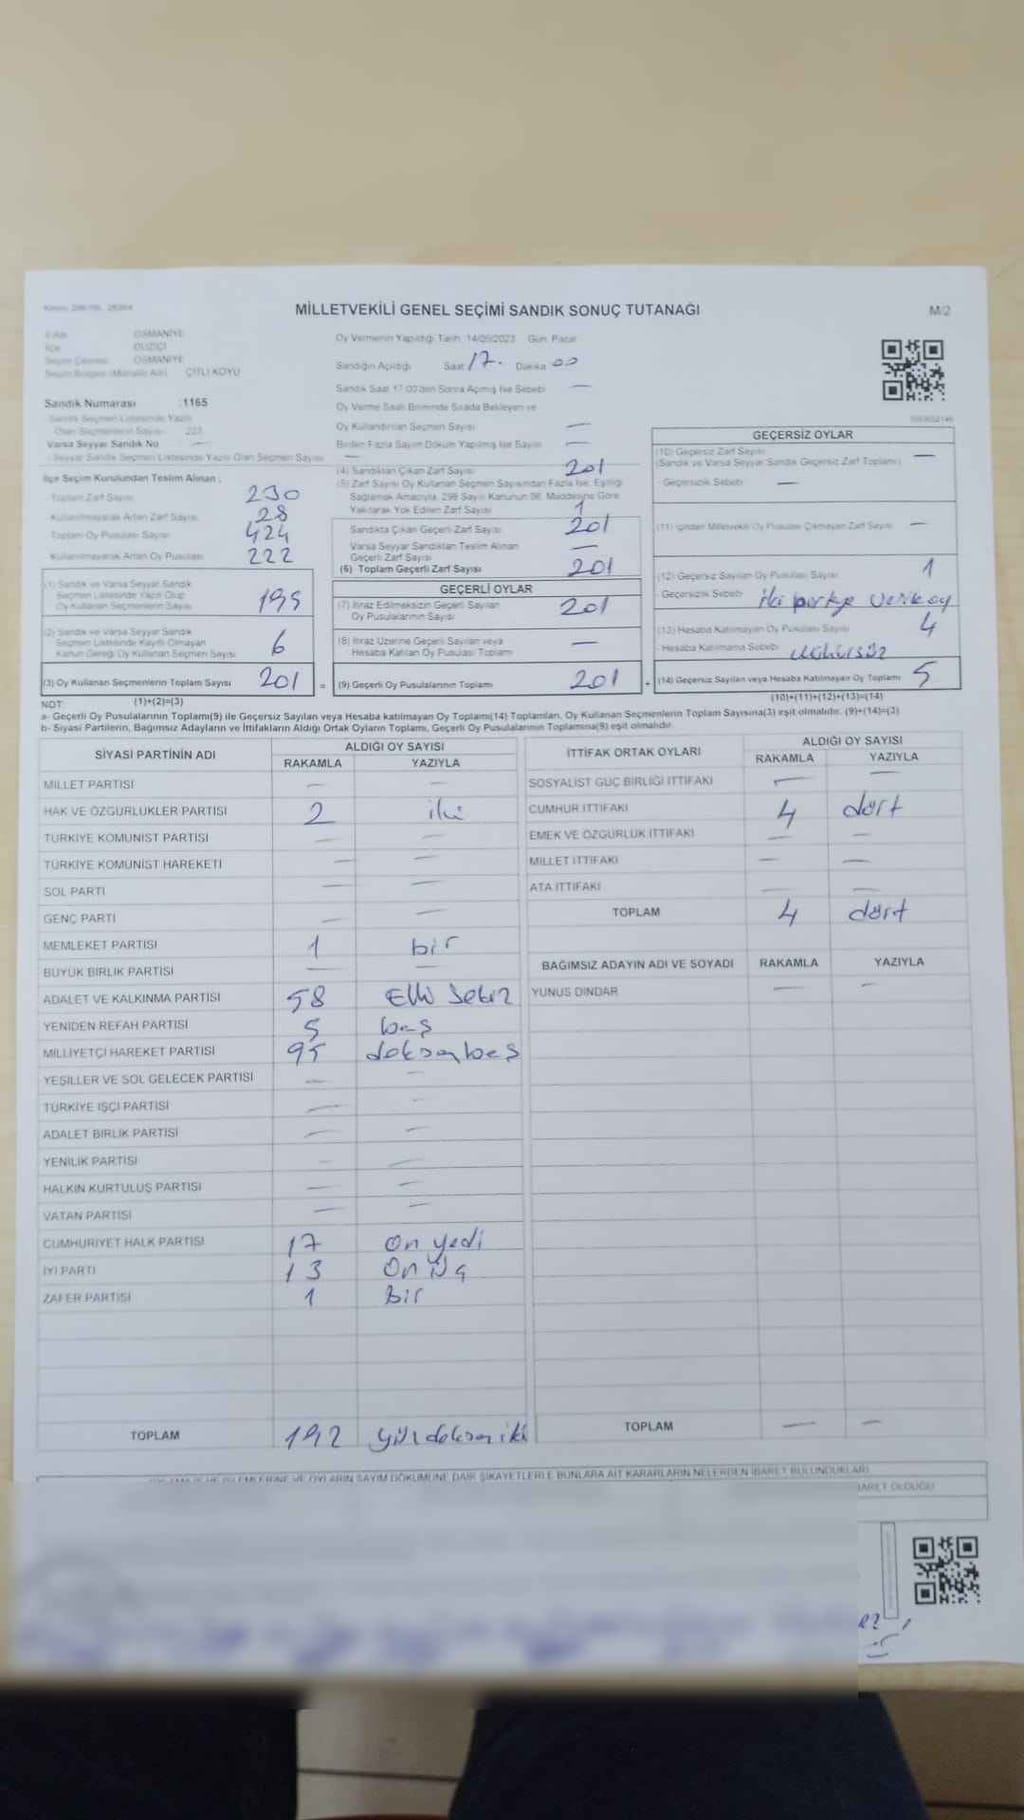 MİLLETVEKİLİ GENEL SEÇİMİ SANDIK SONUÇ TUTANAĞI
M/2
OSMANİYE
DÜZİÇİ
OSMANİYE
ÇİTLİ KÖYÜ
Sandık Numarası :1165
Sandık Seçmen Listesinde Yazılı
Olan Seçmenlerin Sayısı
Varsa Seyyar Sandık No —
Seyyar Sandık Seçmen Listesinde Yazılı Olan Seçmen Sayısı —
Oy Vermenin Yapıldığı Tarih: 14/05/2023 Gün: Pazar
Sandığın Açıldığı Saat 17. Dakika 00
Sandık Saat 17:00'den Sonra Açılmış İse Sebebi —
Oy Verme Saati Bitiminde Sırada Bekleyen ve
Oy Kullandırılan Seçmen Sayısı —
Birden Fazla Sayım Döküm Yapılmış İse Sayısı —
İlçe Seçim Kurulundan Teslim Alınan ;
Toplam Zarf Sayısı 230
Kullanılmayarak Artan Zarf Sayısı 28
Toplam Oy Pusulası Sayısı 424
Kullanılmayarak Artan Oy Pusulası 222
(1) Sandık ve Varsa Seyyar Sandık
Seçmen Listesinde Yazılı Olup
Oy Kullanan Seçmenlerin Sayısı 195
(2) Sandık ve Varsa Seyyar Sandık
Seçmen Listesinde Kayıtlı Olmayan
Kanun Gereği Oy Kullanan Seçmen Sayısı 6
(3) Oy Kullanan Seçmenlerin Toplam Sayısı 201 =
(4) Sandıktan Çıkan Zarf Sayısı 201
(5) Zarf Sayısı Oy Kullanan Seçmen Sayısından Fazla İse, Eşitliği
Sağlamak Amacıyla, 298 Sayılı Kanunun 98. Maddesine Göre
Yakılarak Yok Edilen Zarf Sayısı 1
Sandıkta Çıkan Geçerli Zarf Sayısı 201
Varsa Seyyar Sandıktan Teslim Alınan
Geçerli Zarf Sayısı —
(6) Toplam Geçerli Zarf Sayısı 201
GEÇERLİ OYLAR
(7) İtiraz Edilmeksizin Geçerli Sayılan
Oy Pusulalarının Sayısı 201
(8) İtiraz Üzerine Geçerli Sayılan veya
Hesaba Katılan Oy Pusulası Toplamı —
(9) Geçerli Oy Pusulalarının Toplamı 201 +
GEÇERSİZ OYLAR
(10) Geçersiz Zarf Sayısı —
(Sandık ve Varsa Seyyar Sandık Geçersiz Zarf Toplamı)
Geçersizlik Sebebi —
(11) İçinden Milletvekili Oy Pusulası Çıkmayan Zarf Sayısı —
(12) Geçersiz Sayılan Oy Pusulası Sayısı 1
Geçersizlik Sebebi
(13) Hesaba Katılmayan Oy Pusulası Sayısı 4
Hesaba Katılmama Sebebi mühürsüz
(14) Geçersiz Sayılan veya Hesaba Katılmayan Oy Toplamı 5
NOT: (1)+(2)=(3)
(10)+(11)+(12)+(13)=(14)
a- Geçerli Oy Pusulalarının Toplamı(9) ile Geçersiz Sayılan veya Hesaba katılmayan Oy Toplamı(14) Toplamları, Oy Kullanan Seçmenlerin Toplam Sayısına(3) eşit olmalıdır. (9)+(14)=(3)
b- Siyasi Partilerin, Bağımsız Adayların ve İttifakların Aldığı Ortak Oyların Toplamı, Geçerli Oy Pusulalarının Toplamına(9) eşit olmalıdır.
SİYASİ PARTİNİN ADI ALDIĞI OY SAYISI
RAKAMLA YAZIYLA
MİLLET PARTİSİ — —
HAK VE ÖZGÜRLÜKLER PARTİSİ 2 iki
TÜRKİYE KOMÜNİST PARTİSİ — —
TÜRKİYE KOMÜNİST HAREKETİ — —
SOL PARTİ — —
GENÇ PARTİ — —
MEMLEKET PARTİSİ 1 bir
BÜYÜK BİRLİK PARTİSİ — —
ADALET VE KALKINMA PARTİSİ 58 Elli Sekiz
YENİDEN REFAH PARTİSİ 5 beş
MİLLİYETÇİ HAREKET PARTİSİ 95 doksanbeş
YEŞİLLER VE SOL GELECEK PARTİSİ — —
TÜRKİYE İŞÇİ PARTİSİ — —
ADALET BİRLİK PARTİSİ — —
YENİLİK PARTİSİ — —
HALKIN KURTULUŞ PARTİSİ — —
VATAN PARTİSİ — —
CUMHURİYET HALK PARTİSİ 17 On yedi
İYİ PARTİ 13 On üç
ZAFER PARTİSİ 1 bir
TOPLAM 192 yüzdoksan iki
İTTİFAK ORTAK OYLARI ALDIĞI OY SAYISI
RAKAMLA YAZIYLA
SOSYALİST GÜÇ BİRLİĞİ İTTİFAKI — —
CUMHUR İTTİFAKI 4 dört
EMEK VE ÖZGÜRLÜK İTTİFAKI — —
MİLLET İTTİFAKI — —
ATA İTTİFAKI — —
TOPLAM 4 dört
BAĞIMSIZ ADAYIN ADI VE SOYADI RAKAMLA YAZIYLA
YUNUS DİNDAR — —
TOPLAM — —
OYLARIN SAYIM DÖKÜMÜNE DAİR ŞİKAYETLERLE BUNLARA AİT KARARLARIN NELERDEN İBARET BULUNDUKLARI